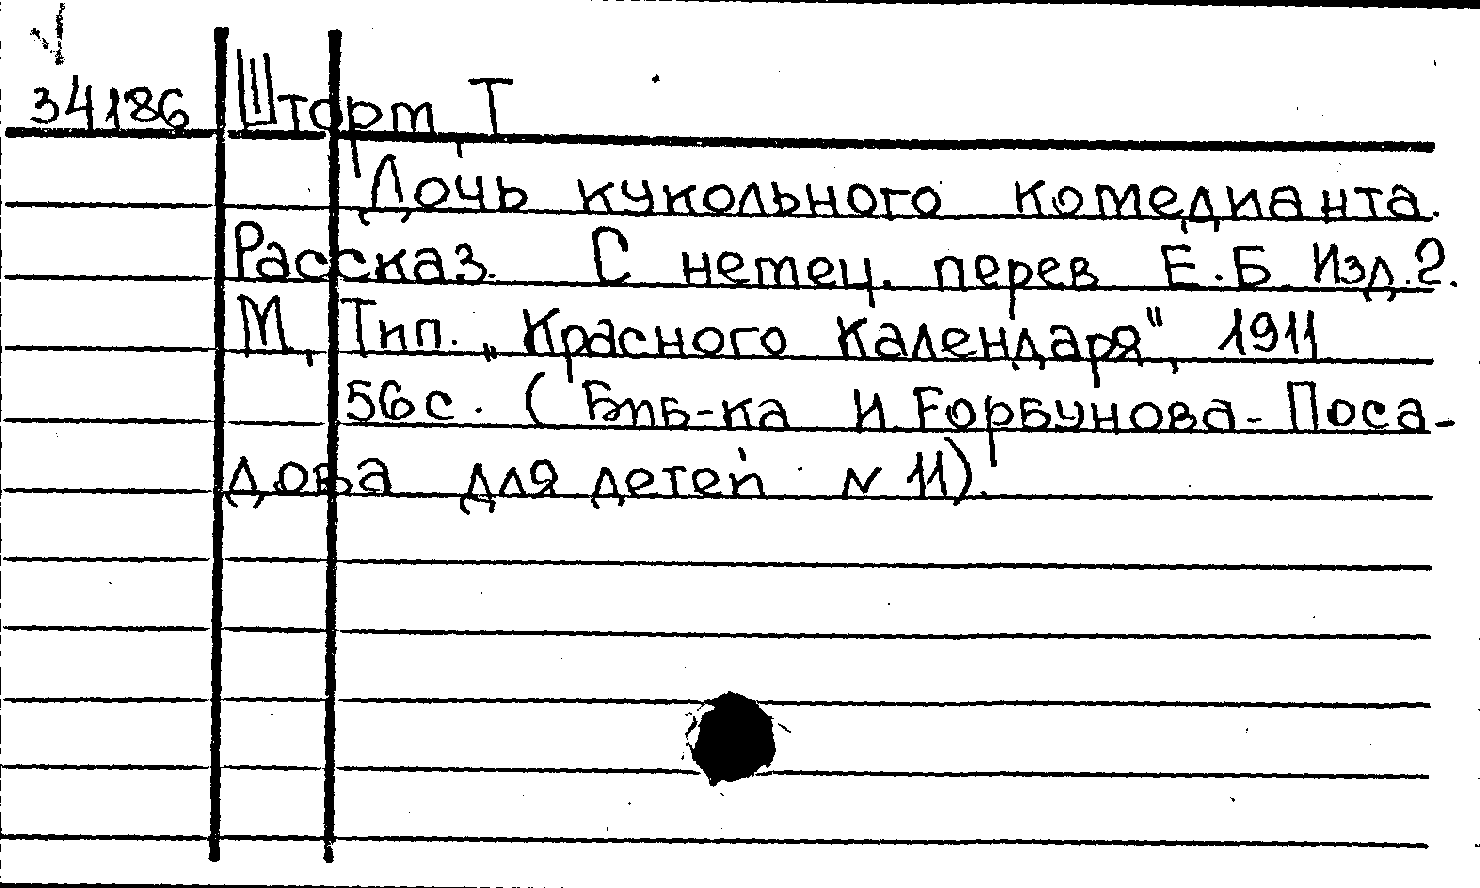 34186 Шторм, Т
Дочь кукольного комедианта.
Рассказ. С немец. перев Е.Б. Изд.2.
М, Тип. „Красного Календаря", 1911
56с. (Бпб-ка И Горбунова-Поса-
дова для детей № 11).